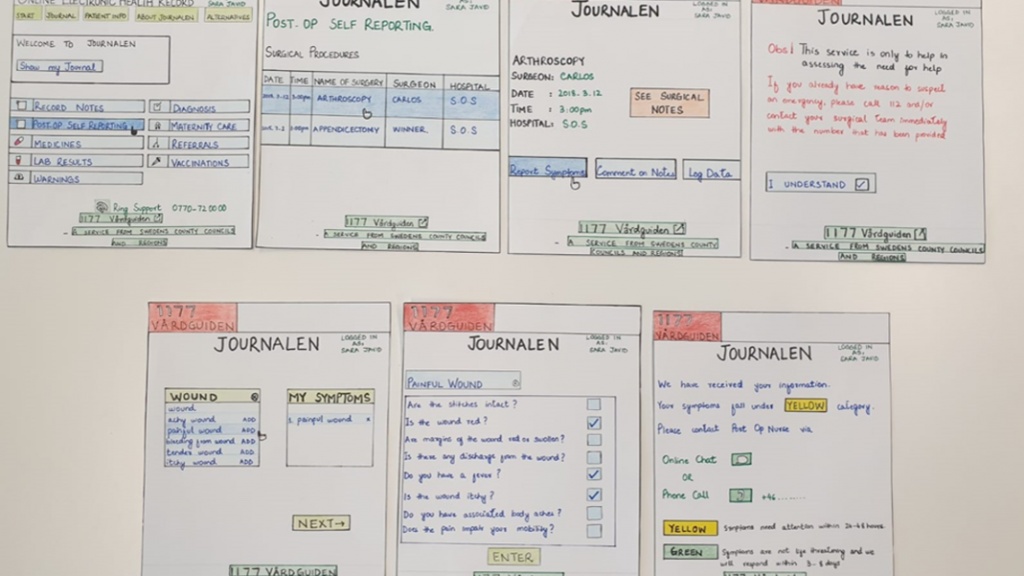 ONLINE ELECTRONIC HEALTH RECORD
SARA JAVID
START JOURNAL PATIENT INFO ABOUT JOURNALEN ALTERNATIVES
WELCOME TO JOURNALEN
Show my Journal
RECORD NOTES
DIAGNOSIS
POST-OP SELF REPORTING
MATERNITY CARE
MEDICINES
REFERRALS
LAB RESULTS
VACCINATIONS
WARNINGS
Ring Support 0770-72 00 00
1177 Vårdguiden
- A SERVICE FROM SWEDENS COUNTY COUNCILS
AND REGIONS
JOURNALEN
AS:
SARA JAVID
POST-OP SELF REPORTING.
SURGICAL PROCEDURES
DATE TIME NAME OF SURGERY SURGEON HOSPITAL
3:00pm ARTHROSCOPY CARLOS S.O.S
APPENDICECTOMY WINNER. S.O.S
1177 Vårdguiden
- A SERVICE FROM SWEDENS COUNTY COUNCILS
AND REGIONS
JOURNALEN
LOGGED IN
AS:
SARA JAVID
ARTHROSCOPY
SURGEON: CARLOS
DATE : 2018.3.12
TIME : 3.00pm
HOSPITAL: S.O.S
SEE SURGICAL
NOTES
Report Symptoms
Comment on Notes
Log Data
1177 Vårdguiden
- A SERVICE FROM SWEDENS COUNTY
KOUNCILS AND REGIONS
JOURNALEN
LOGGED IN
AS:
SARA JAVID
Obs! This service is only to help in
assessing the need for help
If you already have reason to suspect
an emergency, please call 112 and/or
contact your surgical team immediately
with the number that has been provided
I UNDERSTAND
1177 Vårdguiden
- A SERVICE FROM SWEDENS COUNTY COUNCILS
AND REGIONS
1177
VÅRDGUIDEN
JOURNALEN
LOGGED IN
AS:
SARA JAVID
WOUND
wound
achy wound ADD
painful wound ADD
bleeding from wound ADD
tender wound ADD
itchy wound ADD
MY SYMPTOMS
1. painful wound x
NEXT→
1177 VÅRDGUIDEN
1177
VÅRDGUIDEN
JOURNALEN
LOGGED IN
AS:
SARA JAVID
PAINFUL WOUND
Are the stitches intact?
Is the wound red?
Are margins of the wound red or swollen?
Is there any discharge from the wound?
Do you have a fever?
Is the wound itchy?
Do you have associated body aches?
Does the pain impair your mobility?
ENTER
1177
VÅRDGUIDEN
JOURNALEN
LOGGED IN
AS:
SARA JAVID
We have received your information.
Your symptoms fall under YELLOW category.
Please contact Post Op Nurse via
Online Chat
OR
Phone Call +46........
YELLOW Symptoms need attention within 24-48 hours
GREEN Symptoms are not life threatening and we
will respond within 3-8 days